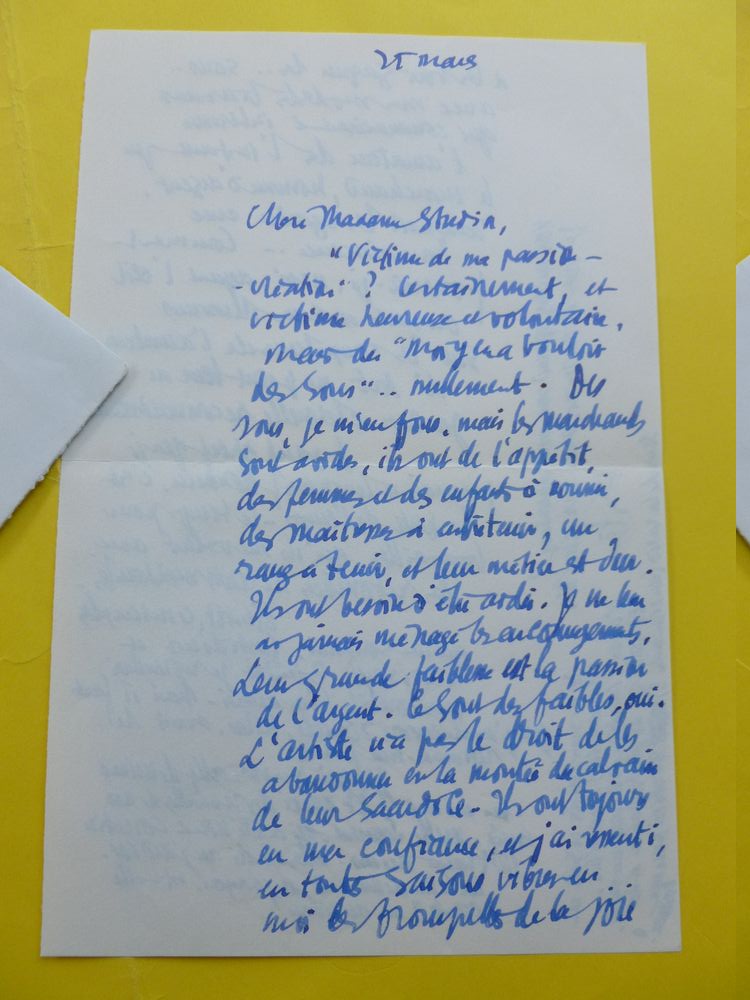 25 mars
Chère Madame
"Victime de ma passion –
- création" ? Certainement, et
victime heureuse et volontaire,
mais du "moyen à vouloir
des sous".. nullement. Des
sous, je m'en fous, mais les marchands
sont avides, ils ont de l'appétit,
des femmes et des enfants à nourrir,
des maîtresses à entretenir, un
rang à tenir, et leur métier est dur.
Ils ont besoin d'être aidés. Je ne leur
ai jamais ménagé les encouragements.
Leur grande faiblesse est la passion
de l'argent. Ce sont des faibles, oui.
L'artiste n'a pas le droit de les
abandonner en la montée du calvaire
de leur sacerdoce. Ils ont toujours
eu ma confiance, et j'ai senti,
en toutes saisons vibrer en
moi les trompettes de la joie